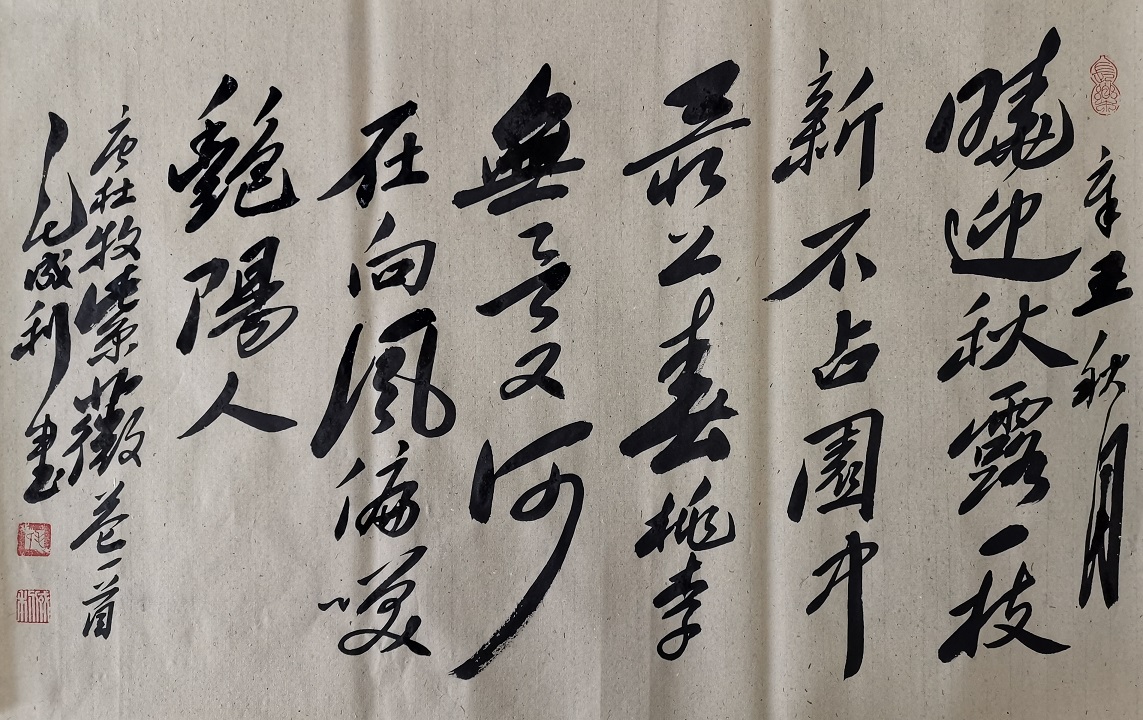 辛丑秋月
曉迎秋露一枝
新不占園中
最上春桃李
無言又何
在向風偏咲
艷陽人
唐杜牧紫薇花一首
成利書